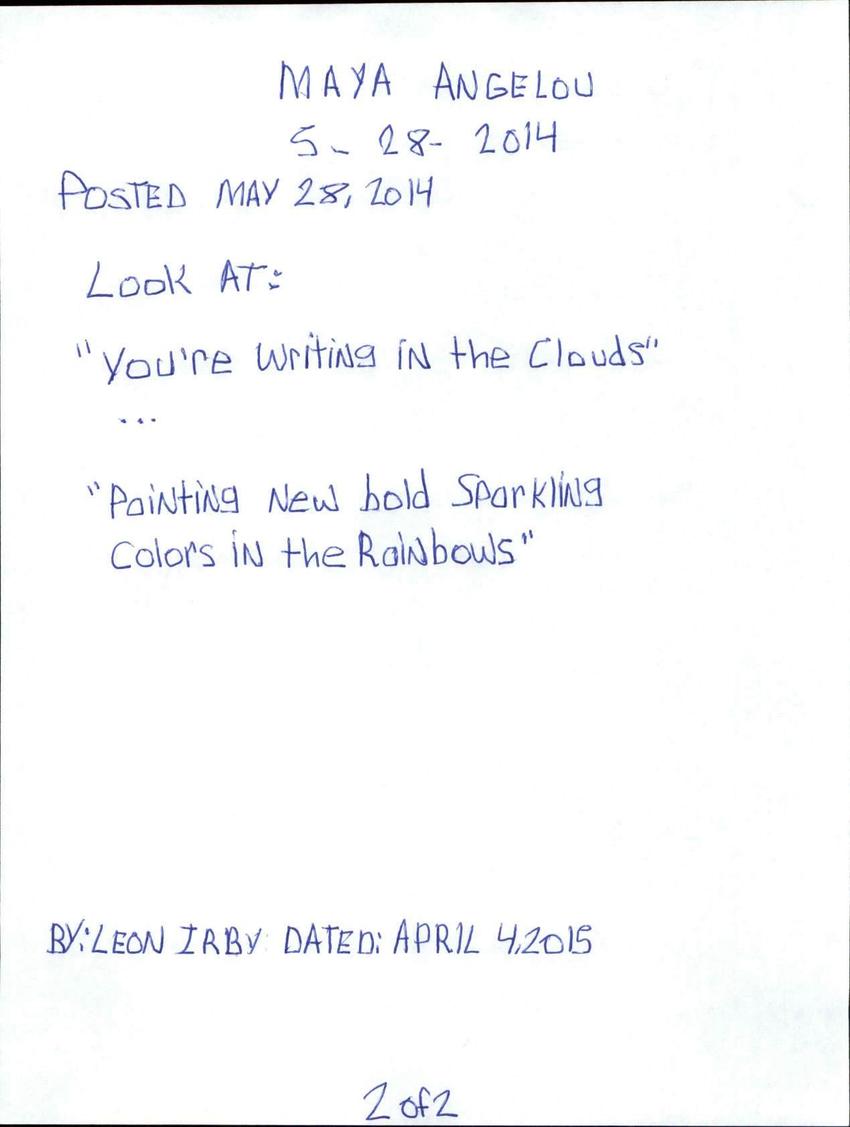 MAYA ANGELOU
5- 28- 2014
POSTED MAY 28, 2014
LOOK AT:
"You're Writing in the Clouds"
...
"Painting New bold Sparkling
Colors in the Rainbows"
BY: LEON IRBY DATED: APRIL 4, 2015
2 of 2